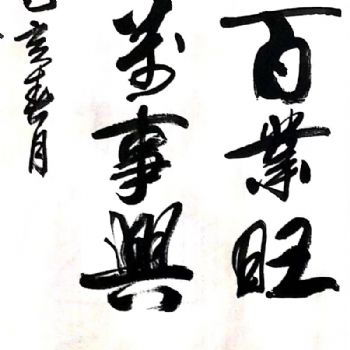 百業旺
萬事興
己亥春月